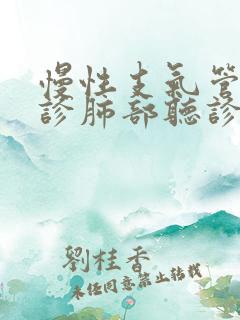 慢性支氣管
診肺部聽診
劉桂香
未经同意禁止转载